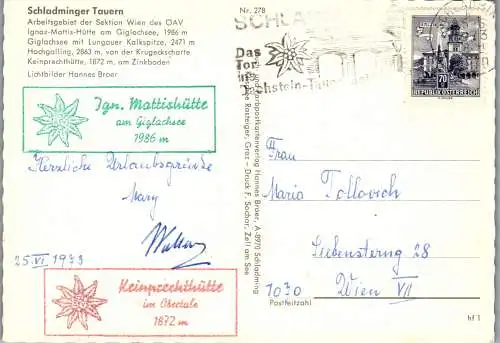 Schladminger Tauern
Arbeitsgebiet der Sektion Wien des ÖAV
Ignaz-Mattis-Hütte am Giglachsee, 1986 m
Giglachsee mit Lungauer Kalkspitze, 2471 m
Hochgolling, 2863 m, von der Krugeckscharte
Keinprechthütte, 1872 m, am Zinkboden
Lichtbilder Hannes Broer
Ign. Mattishütte
am Giglachsee
1986 m
Herzliche Urlaubsgrüsse
Mary
25. VI 1973
Keinprechthütte
im Obertale
1872 m
Nr. 278
SCHLA
Das
Tor
ins
Dachstein-Tauern
70
REPUBLIK ÖSTERREICH
Farbpostkartenverlag Hannes Broer, A-8970 Schladming
Rasteiger, Graz - Druck F. Sochor, Zell am See
Frau
Maria
Siebensterng 28
1070 Wien VII
Postleitzahl
hf 1